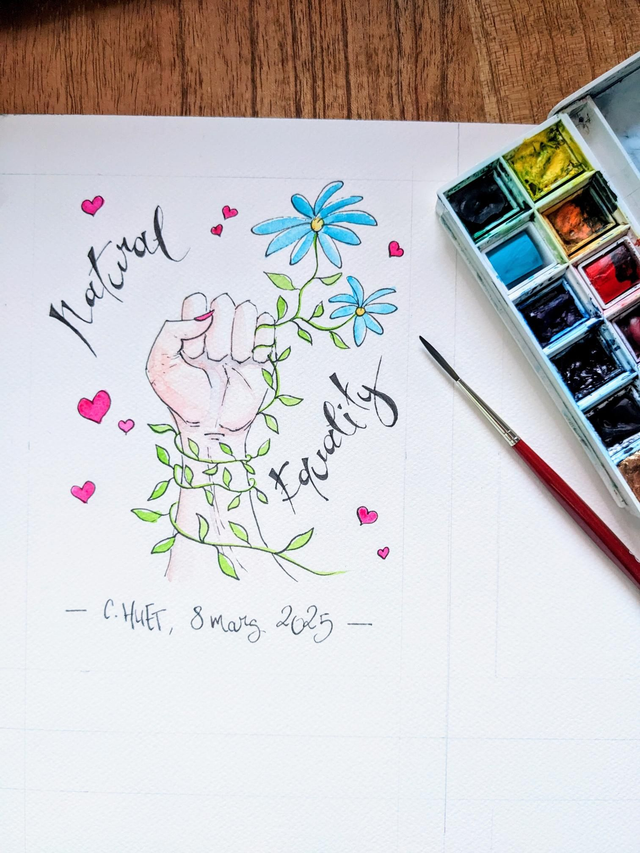 Natural
Equality
— C. HUET, 8 marz. 2025 —